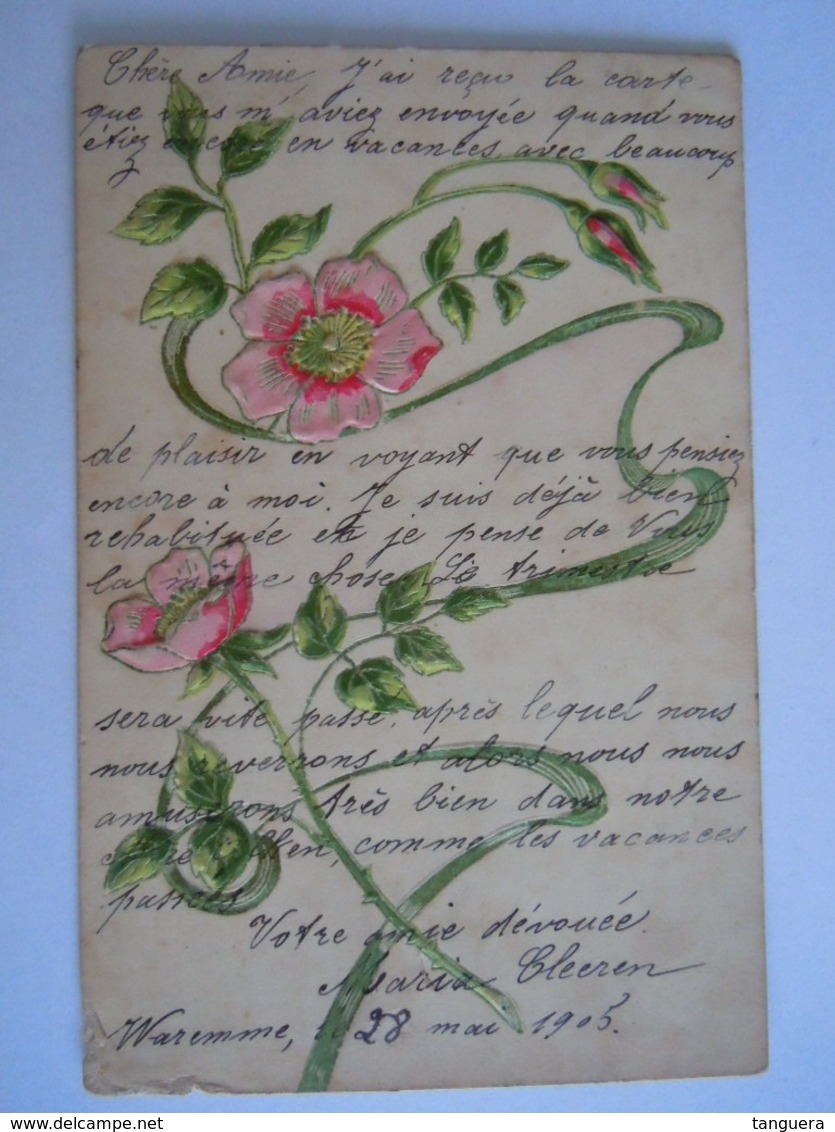 Chère Amie, J'ai reçu la carte
que vous m'aviez envoyée quand vous
étiez encore en vacances avec beaucoup
de plaisir en voyant que vous pensiez
encore à moi. Je suis déjà bien
rehabituée et je pense de Vous
la même chose. Le trimestre
sera vite passé, après lequel nous
nous reverrons et alors nous nous
amuserons très bien dans notre
comme les vacances
passées
Votre amie dévouée.
Maria Cleeren
Waremme, le 28 mai 1905.
www.delcampe.net
tanguera